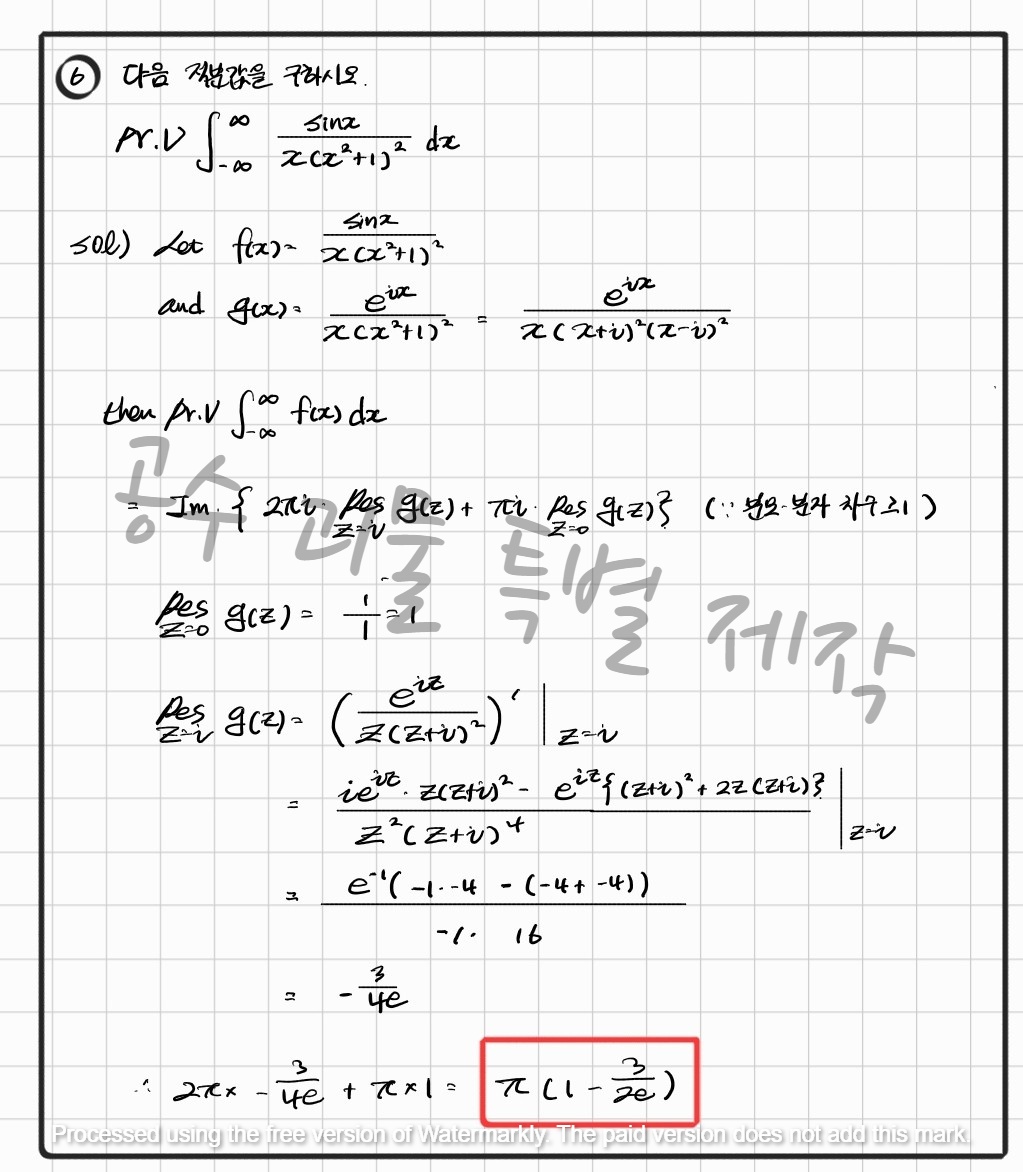 ⑥ 다음 적분값을 구하시오.
Pr.V ∫_{-∞}^{∞} sinx / x(x²+1)² dx
sol) Let f(x) = sinx / x(x²+1)²
and g(x) = e^{ix} / x(x²+1)² = e^{ix} / x(x+i)²(x-i)²
then Pr.V ∫_{-∞}^{∞} f(x) dx
= Im { 2πi · Res_{z=i} g(z) + πi · Res_{z=0} g(z) } (∵ 분모-분자 차수≥1)
공수 괴물 특별 제작
Res_{z=0} g(z) = 1/1 = 1
Res_{z=i} g(z) = ( e^{iz} / z(z+i)² )' |_{z=i}
= ie^{iz} · z(z+i)² - e^{iz}{(z+i)² + 2z(z+i)} / z²(z+i)⁴ |_{z=i}
= e^{-1}(-1·-4 - (-4+-4)) / -1· 16
= - 3/4e
∴ 2π× - 3/4e + π×1 = π(1 - 3/2e)
Processed using the free version of Watermarkly. The paid version does not add this mark.